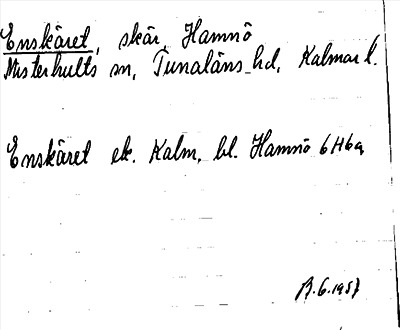 Enskäret, skär, Hamnö
Misterhults sn, Tunaläns hd, Kalmar l.
Enskäret ek. Kalm, bl. Hamnö 6H6a
A.G.1957